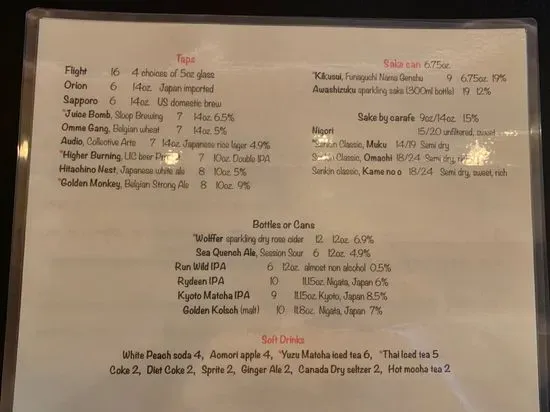 Taps
Flight 16 4 choices of 5oz glass
Orion 6 14oz Japan imported
Sapporo 6 14oz US domestic brew
*Juice Bomb, Sloop Brewing 7 14oz 6.5%
Omme Gang, Belgian wheat 7 14oz 5%
Audio, Collective Arts 7 14oz Japanese rice lager 4.9%
*Higher Burning, LIC beer 7 10oz Double IPA
Hitachino Nest, Japanese white ale 8 10oz 5%
*Golden Monkey, Belgian Strong Ale 8 10oz 9%
Sake can 6.75oz
*Kikusui, Funaguchi Nama Genshu 9 6.75oz 19%
Awashizuku sparkling sake (300ml bottle) 19 12%
Sake by carafe 9oz/14oz 15%
Nigori 15/20 unfiltered, sweet
*Senkin Classic, Muku 14/19 Semi dry
Senkin Classic, Omachi 18/24 Semi dry, rich
Senkin classic, Kame no o 18/24 Semi dry, sweet, rich
Bottles or Cans
*Wolffer sparkling dry rose cider 12 12oz 6.9%
Sea Quench Ale, Session Sour 6 12oz 4.9%
Run Wild IPA 6 12oz almost non alcohol 0.5%
Rydeen IPA 10 11.15oz Nigata, Japan 6%
Kyoto Matcha IPA 9 11.15oz Kyoto, Japan 8.5%
Golden Kolsch (malt) 10 11.8oz Nigata, Japan 7%
Soft Drinks
White Peach soda 4, Aomori apple 4, *Yuzu Matcha iced tea 6, *Thai Iced tea 5
Coke 2, Diet Coke 2, Sprite 2, Ginger Ale 2, Canada Dry seltzer 2, Hot mocha tea 2